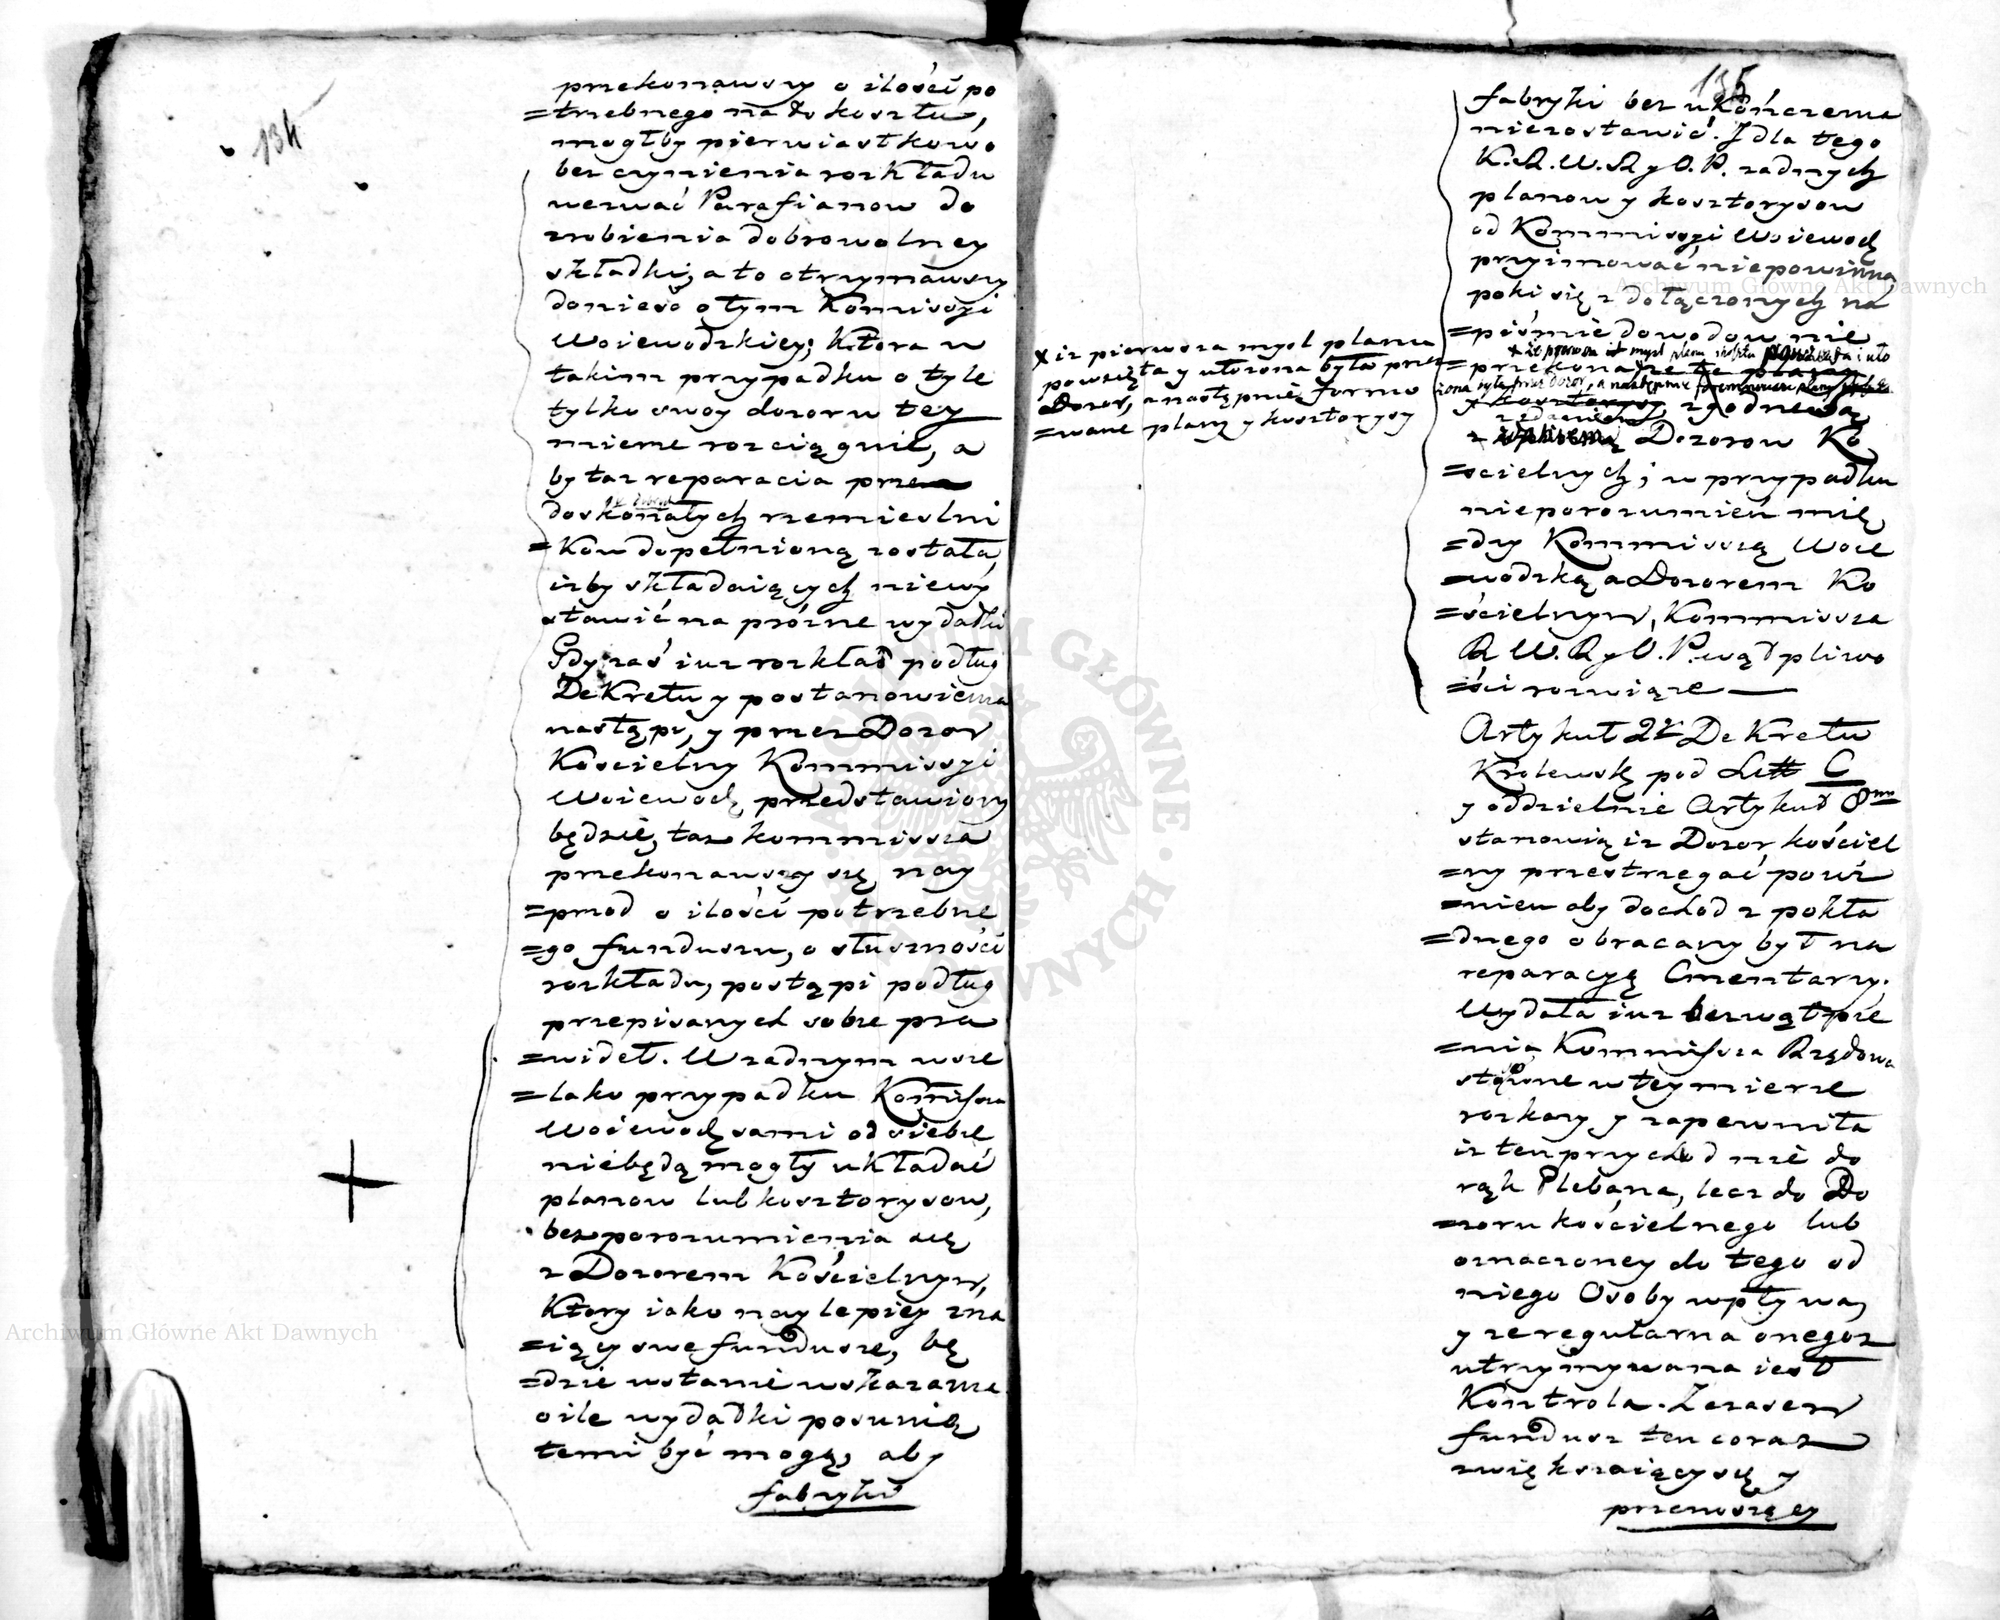 134
przekonawszy o ilości po
=trzebnego na to kosztu,
mogłby pierwiastkowo
bez czynienia rozkładu
wezwać Parafianow do
zrobienia dobrowolney
składki, a to otrzymawszy
donieść o tym Kommissyi
Woiewodzkiey; Ktora w
takim przypadku o tyle
tylko swoy dozor w tey
mierze rozciągnie, a
by taż reparacia przez
doskonałych rzemieslni
=kow dopełnioną została,
iżby składaiących niewy
stawić na prózne wydatki
Gdy zaś iuż rozkład podług
Dekretu y postanowienia
nastąpi, y przez Dozor
Kościelny Kommissyi
Woiewodz. przedstawiony
będzie, taż kommissya
przekonawszy się nay
=przod o ilości potrzebne
=go funduszu, o słuszności
rozkładu, postąpi podług
przepisanych sobie pra
=wideł. W zadnym wsze
=lako przypadku Kommissya
Woiewodz. sami od siebie
niebędą mogły układać
planow lub kosztorysow,
bez porozumienia się
z Dozorem Kościelnym,
Ktory iako naylepiey zna
=iący swe fundusze, bę
=dzie w stanie wskazania
o ile wydatki posunię
temi być mogą, aby
fabryki
135
fabryki bez ukończenia
niezostawić. I dla tego
K. R. W. R. y O. P. zadnych
planow y kosztorysow
od Kommissyi Woiewodz.
przyimować niepowinna
poki się z dołączonych na
=piśmie dowodow nie
=przekona że te plany
y kosztorysy, zgodne są
z zdaniem Dozorow Ko
=ścielnych; w przypadku
nieporozumień mię
=dzy Kommissyą Woie
=wodzką a Dozorem Ko
=ścielnym, Kommissya
R. W. R. y O. P. wątpliwo
=ści rozwiąże
x iż pierwsza mysl planu
powzięta y ułożona była przez
Dozor, a następnie formo
=wane plany y kosztorysy
Artykuł 2gi Dekretu
Krolewsk. pod Litt C
y oddzielnie Artykuł 8my
stanowią iż Dozor kościel
=ny przestrzegać powi
=nien aby dochod z pokła
=dnego obracany był na
reparacyę Cmentarzy.
Wydała iuż bez wątpie
=nia Kommissya Rządowa
stosowne w tey mierze
rozkazy y zapewniła
iż ten przychod nie do
rąk Plebana, lecz do Do
=zoru kościelnego lub
oznaczoney do tego od
niego Osoby wpływa,
y że regularna onegoż
utrzymywana iest
Kontrola. Z czasem
fundusz ten coraz
zwiększaiący się y
przenoszący